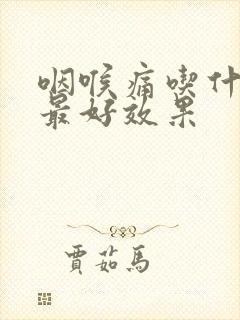 咽喉痛喫什
最好效果
賈茹馬